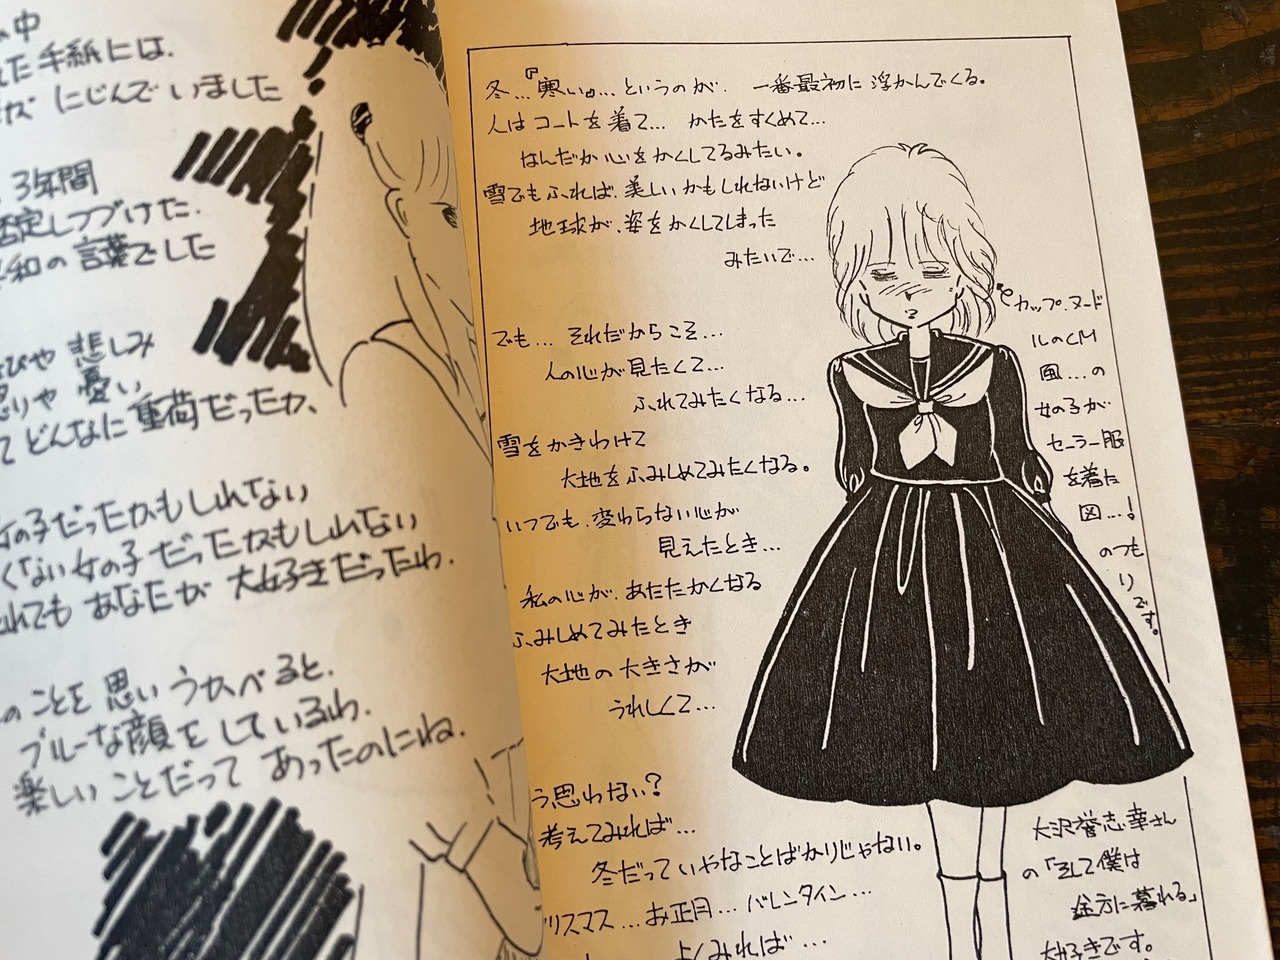 中
た手紙には.
にじんでいました
3年間
否定しつづけた.
和の言葉でした
びや 悲しみ
りや 憂い
てどんなに重荷だったか、
女の子だったかもしれない
くない女の子だったかもしれない
れでもあなたが大好きだったわ.
のことを思いうかべると.
ブルーな顔をしているわ.
楽しいことだってあったのにね.
冬…『寒い』…というのが. 一番最初に浮かんでくる。
人はコートを着て… かたをすくめて…
なんだか心をかくしてるみたい。
雪でもふれば、美しいかもしれないけど
地球が、姿をかくしてしまった
みたいで…
でも… それだからこそ…
人の心が見たくて…
ふれてみたくなる…
雪をかきわけて
大地をふみしめてみたくなる。
いつでも、変わらない心が
見えたとき…
私の心が、あたたかくなる
ふみしめてみたとき
大地の大きさが
うれしくて…
う思わない?
考えてみれば…
冬だっていやなことばかりじゃない。
リスマス…お正月…バレンタイン…
よくみれば…
カップ・ヌード
ルのCM
風…の
女の子が
セーラー服
を着た
図…!
のつも
りです。
大沢誉志幸さん
の「そして僕は
途方に暮れる」
大好きです。